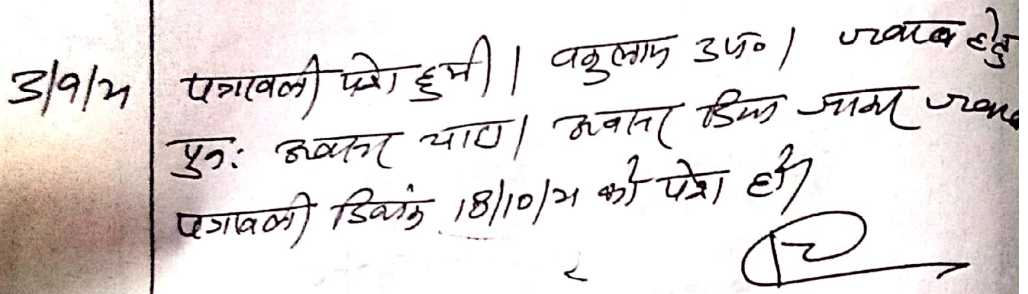 3/9/24 पत्रावली पेश हुयी। वकुलाय उप०। जवाब हेतु
पुन: अवसर चाहा। अवसर दिया जाकर जवाब
पत्रावली दिनांक 18/10/24 को पेश हो।